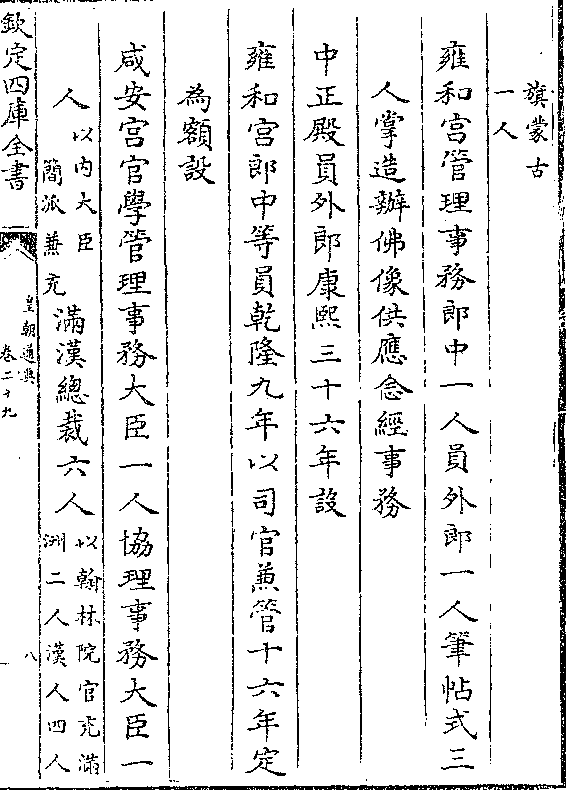 旗蒙古
一人
雍和宮管理事務郎中一人員外郎一人筆帖式三
人掌造辦佛像供應念經事務
中正殿員外郎康熙三十六年設
雍和宮郎中等員乾隆九年以司官兼管十六年定
為額設
咸安宮官學管理事務大臣一人協理事務大臣一
人以内大臣
簡派兼充滿漢總裁六人以翰林院官充滿
洲二人漢人四人
欽定四庫全書
皇朝通典
卷二十九
八